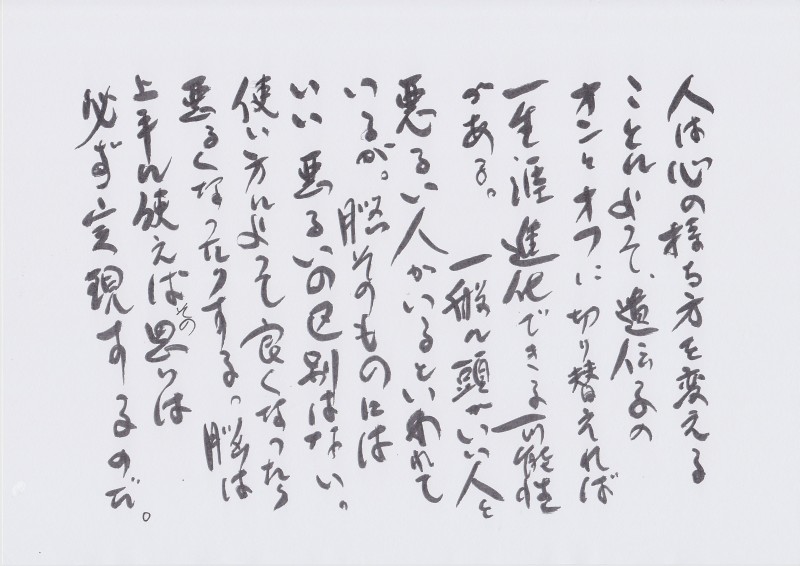 人は心の持ち方を変える
ことによって、遺伝子の
オンとオフに切り替えれば
一生涯進化できる可能性
がある。一般に頭がいい人と
悪るい人がいるといわれて
いるが。脳そのものには
いい悪るいの区別はない。
使い方によって良くなったり
悪るくなったりする。脳は
上手に使えばその思いは
必ず実現するのだ。